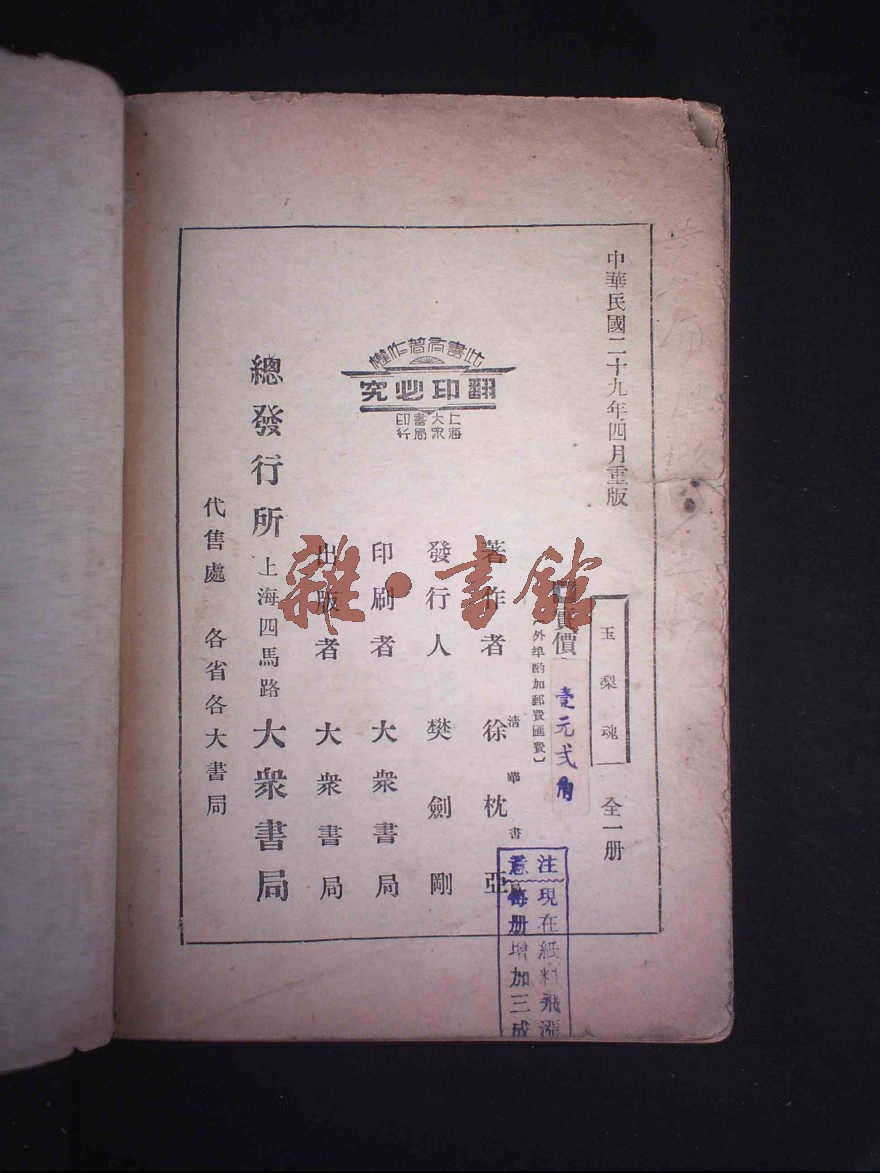 中華民國二十九年四月重版
玉梨魂 全一册
實價
壹元弍角
外埠酌加郵費匯費
著作者 徐枕亞
清華書
發行人 樊劍剛
印刷者 大衆書局
出版者 大衆書局
總發行所 上海四馬路 大衆書局
代售處 各省各大書局
此書有著作權
翻印必究
上海大衆書局印行
注意
現在紙料飛漲
每册增加三成
雜·書館